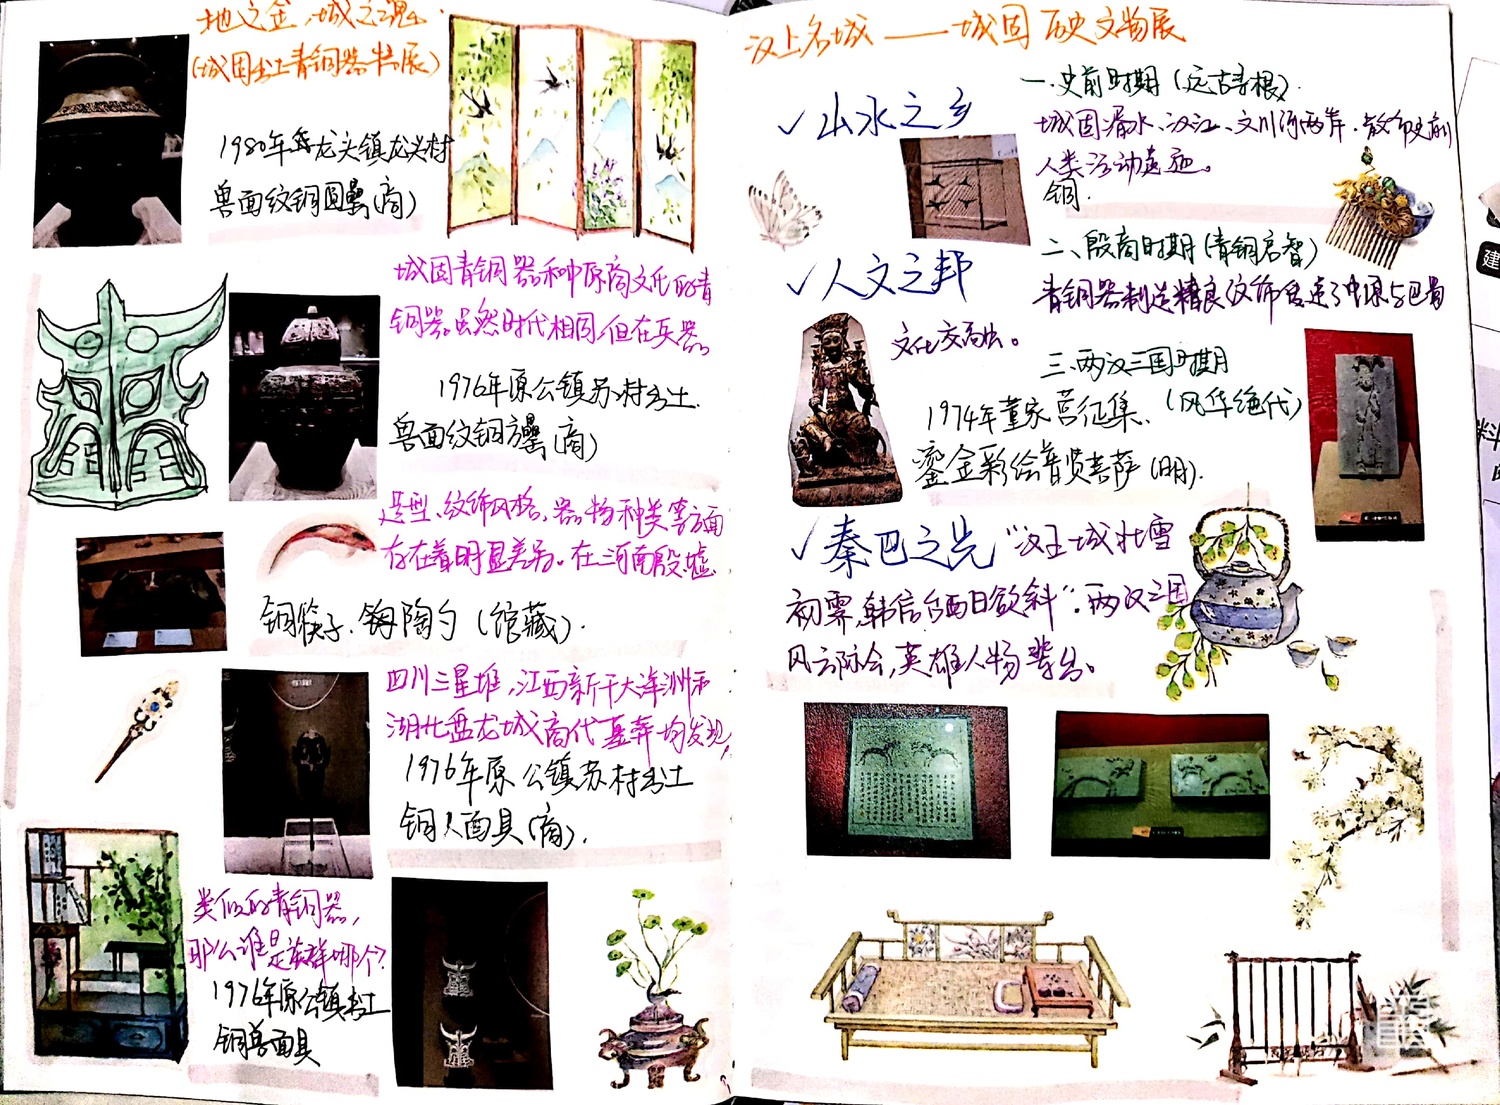 地之金,城之魂.
(城固出土青铜器特展)
1980年龙头镇龙头村
兽面纹铜圆罍(商)
城固青铜器和中原商文化的青
铜器虽然时代相同,但在兵器。
1976年原公镇苏村出土.
兽面纹铜方罍(商)
造型、纹饰风格、器物种类等方面
存在着明显差异。在河南殷墟
铜筷子、铜陶勺(馆藏).
四川三星堆,江西新干大洋洲和
湖北盘龙城商代墓葬均发现
1976年原公镇苏村出土
铜人面具(商).
类似的青铜器,
那么谁是英群哪个?
1976年原公镇出土
铜兽面具
汉上名城——城固历史文物展
一.史前时期(远古寻根).
✓山水之乡
城固湑水、汉江、文川河两岸.散布史前
人类活动遗迹。
铜.
二、殷商时期(青铜启智)
✓人文之邦
青铜器制造精良纹饰 了中原与巴蜀
文化交流。
三.两汉三国时期
(风华绝代)
1974年董家营征集.
鎏金彩绘普贤菩萨(明).
✓秦巴之光
"汉王城北雪
初霁,韩信台西日欲斜".两汉三国
风云际会,英雄人物辈出。